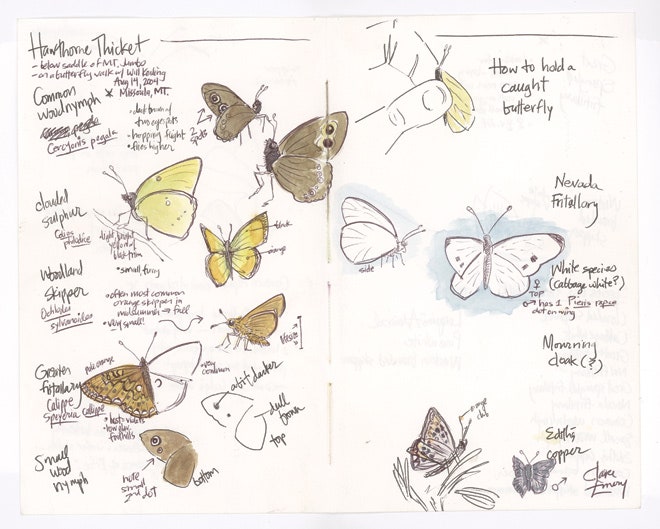 Hawthorne Thicket
- below saddle of MT. Jumbo
- on a butterfly walk w/ Will Keating
Aug 14, 2004
Missoula, MT.
Common
woodnymph
pegala
Cercyonis pegala
• dark brown w/
two eyespots
• hopping flight
• flies higher
2
spots
Clouded
Sulphur
Colias
philodice
• light, bright
yellow w/
black trim
black
orange
Woodland
Skipper
Ochlodes
sylvanoides
• small, furry
• often most common
orange skipper in
midsummer → fall
• very small!
Greater
fritillary
Calippe
Speyeria callippe
pale orange
• very
common
foothills
a bit darker
dull
brown
top
Small
wood
nymph
note
small
2nd dot
bottom
How to hold a
caught
butterfly
Nevada
Fritillary
side
White species
(cabbage white?)
♀
TOP
♂ → has 1
dot on wing
Pieris rapae
Mourning
cloak (?)
orange
dot
Edith's
copper
♂
Clare
Emery